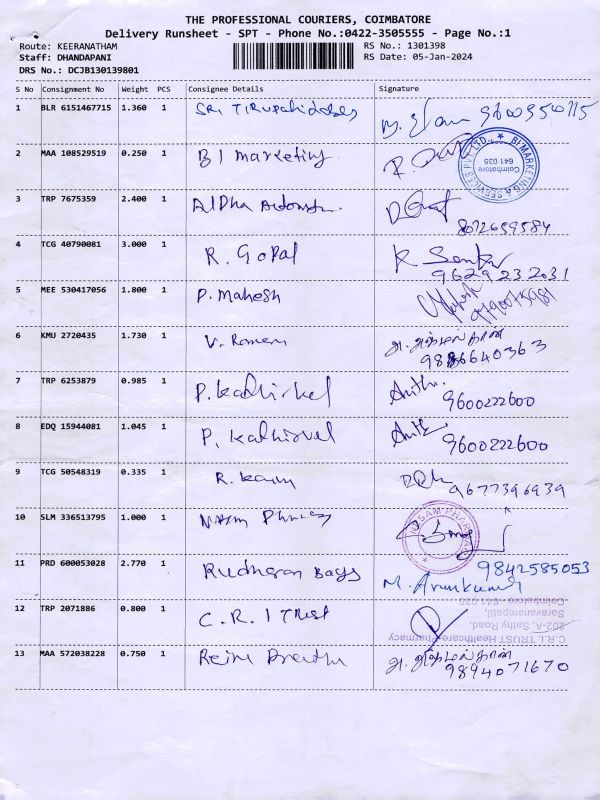 THE PROFESSIONAL COURIERS, COIMBATORE
Delivery Runsheet - SPT - Phone No.:0422-3505555 - Page No.:1
Route: KEERANATHAM RS No.: 1301398
Staff: DHANDAPANI RS Date: 05-Jan-2024
DRS No.: DCJB130139801
S No Consignment No Weight PCS Consignee Details Signature
1 BLR 6151467715 1.360 1 SRI 9600550115
2 MAA 108529519 0.250 1 B I Marketing
BI MARKETING & SERVICES PVT. LTD. Coimbatore 641 035
3 TRP 7675359 2.400 1 Alpha
8072659584
4 TCG 40790081 3.000 1 R. Gopal
9629232031
5 MEE 530417056 1.800 1 P. Mahesh
6 KMU 2720435 1.730 1 V. Raman
7 TRP 6253879 0.985 1 P. Kathirvel
9600222600
8 EDQ 15944081 1.045 1 P. Kathirvel
9600222600
9 TCG 50548319 0.335 1 R.
9677396939
10 SLM 336513795 1.000 1
11 PRD 600053028 2.770 1 Rudhran Bags 9842585053
M. Arunkumar
12 TRP 2071886 0.800 1 C.R.I Trust
C.R.I. TRUST Healthcare Pharmacy
202-A, Sathy Road,
Saravanampatti,
Coimbatore - 641 035
13 MAA 572038228 0.750 1
9894071670